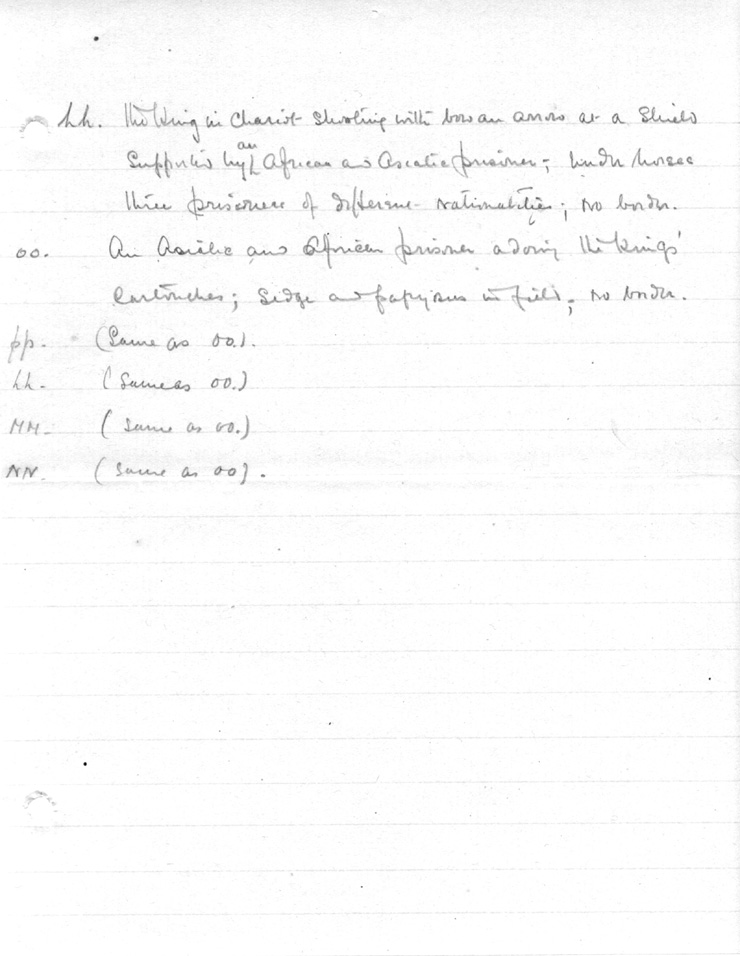 hh. The King in Chariot shooting with bow an arrow at a Shield
Supported by an African and Asiatic prisoner; under horses
three prisoners of different nationalities; no border.
oo. An Asiatic and African prisoner adoring the kings'
Cartouches; Sedge and papyrus in field; no border.
pp. (Same as oo.).
hh. (Same as oo.)
MM. (Same as oo.)
NN. (Same as oo).